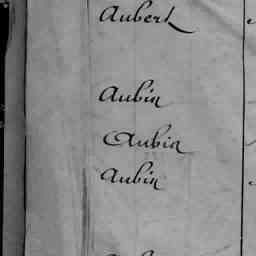 Aubert
Aubin
Aubin
Aubin